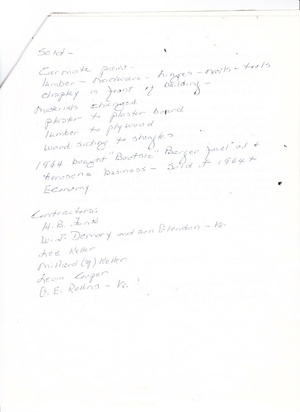 Sold -
Carmote paint -
lumber - hardware - hinges - nails - tools
display in front of building -
Materials changed
plaster to plaster board
lumber to plywood
wood siding to shingles
1964 bought "Bootsie" Barger fuel oil +
kerosene business - sold it 1964 to
Economy
Contractors:
H.B. Funk
W.J. Demory and son Blendon - Va.
Lee Keller
Millard Keller
Levin
G.E. Rollins - Va.